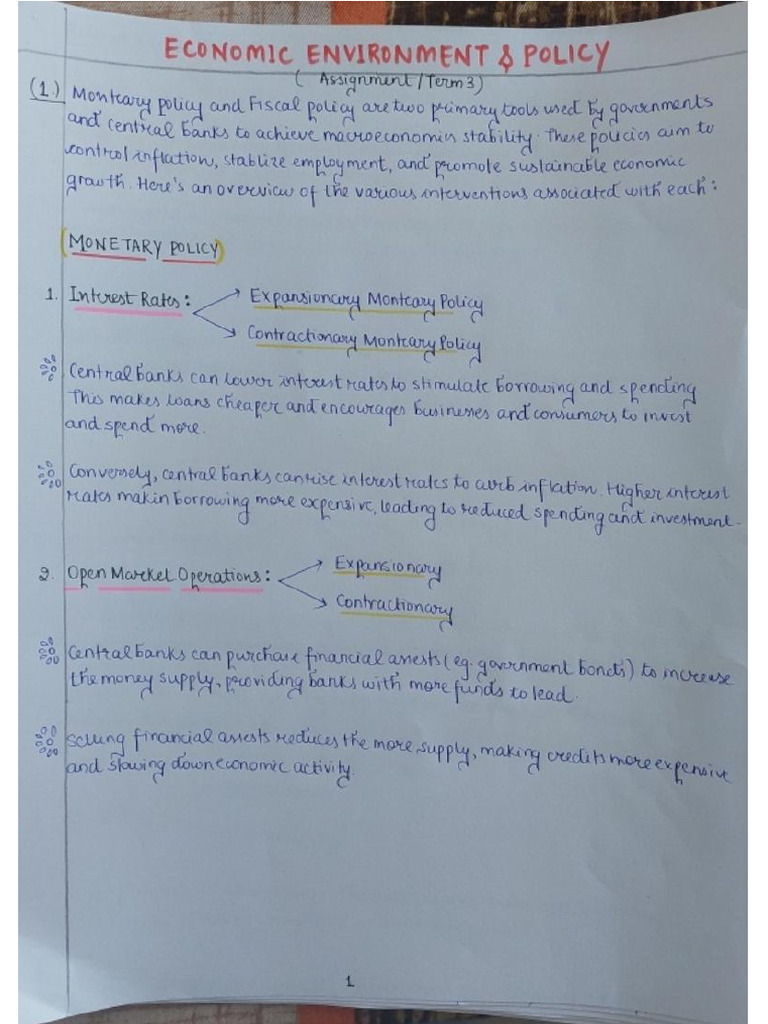 ECONOMIC ENVIRONMENT & POLICY
( Assignment / Term 3)
(1.) Monteary policy and Fiscal policy are two primary tools used by governments
and central banks to achieve macroeconomin stability. These policies aim to
control inflation, stablize employment, and promote sustainable economic
growth. Here's an overview of the various interventions associated with each:
(MONETARY POLICY)
1. Interest Rates:
Expansionary Monteary Policy
Contractionary Monteary Policy
Central banks can lower interest rates to stimulate borrowing and spending
This makes loans cheaper and encourages businesses and consumers to invest
and spend more.
Conversely, central banks can rise interest rates to curb inflation. Higher interest
rates makin borrowing more expensive, leading to reduced spending and investment.
2. Open Market Operations:
Expansionary
Contractionary
Central banks can purchase financial assests (eg. government bonds) to increase
the money supply, providing banks with more funds to lead.
Selling financial assests reduces the more supply, making credits more expensive
and slowing down economic activity.
1